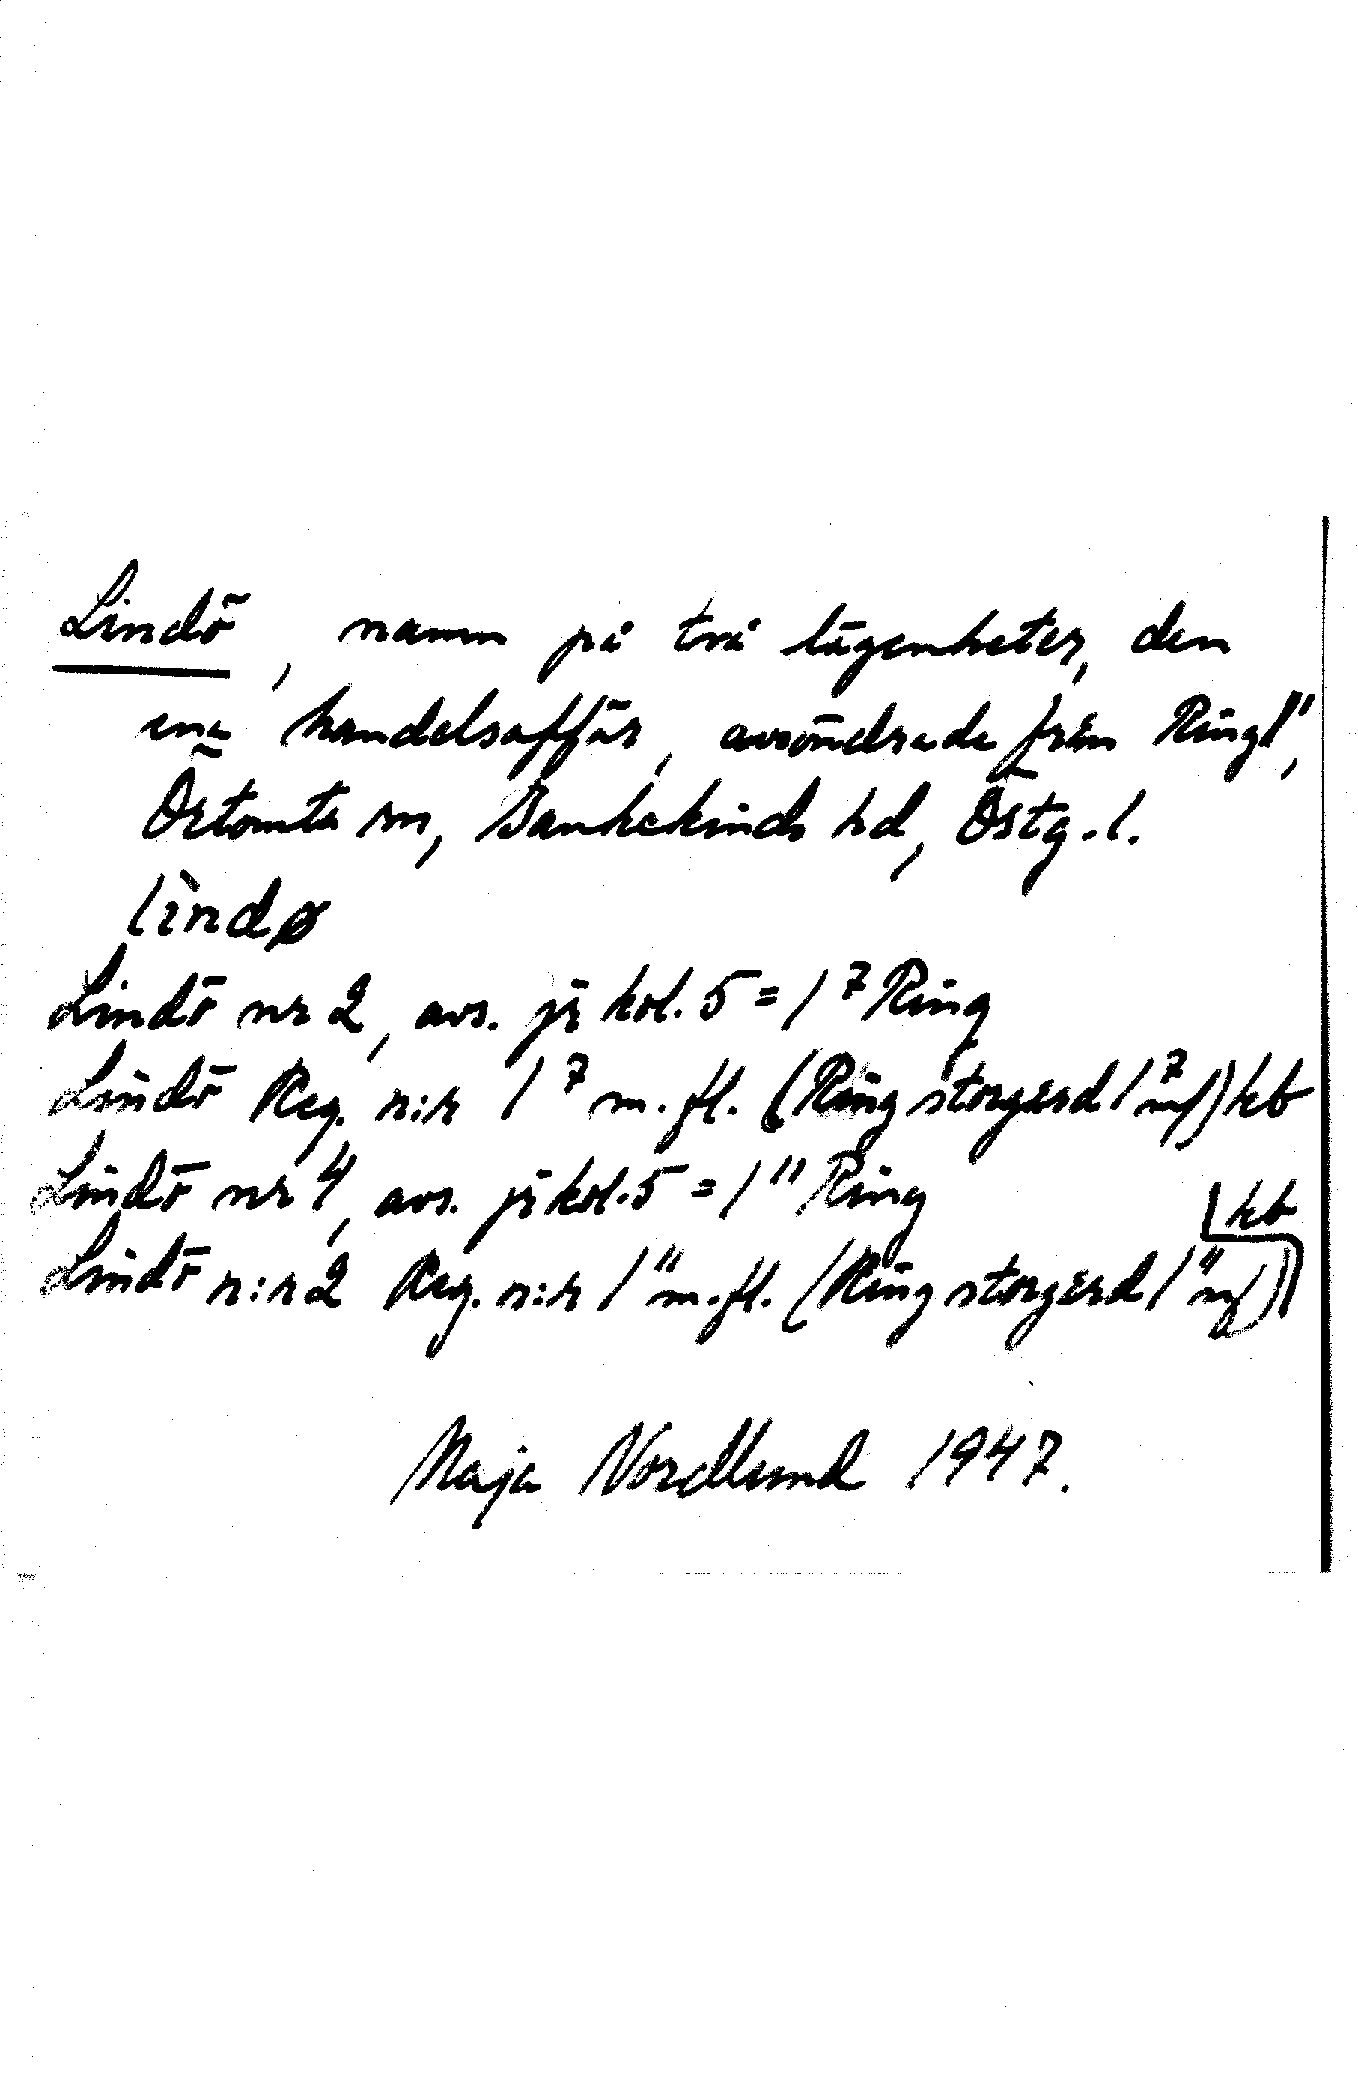 Lindö, namn på två lägenheter, den
ena handelsaffär, avsöndrade från Ring 1¹¹,
Örtomta sn, Bankekinds hd, Östg. l.
lìndø
Lindö nr 2, avs. jr kol. 5 = 1⁷ Ring
Lindö Reg. n:r 1⁷ m. fl. (Ring storgård 1⁷ mf) kb
Lindö nr 4, avs. jr kol. 5 = 1¹¹ Ring
Lindö n:r 2 Reg. n:r 1¹¹ m. fl. (Ring storgård 1¹¹ mf) kb
Maja Nordlund 1947.